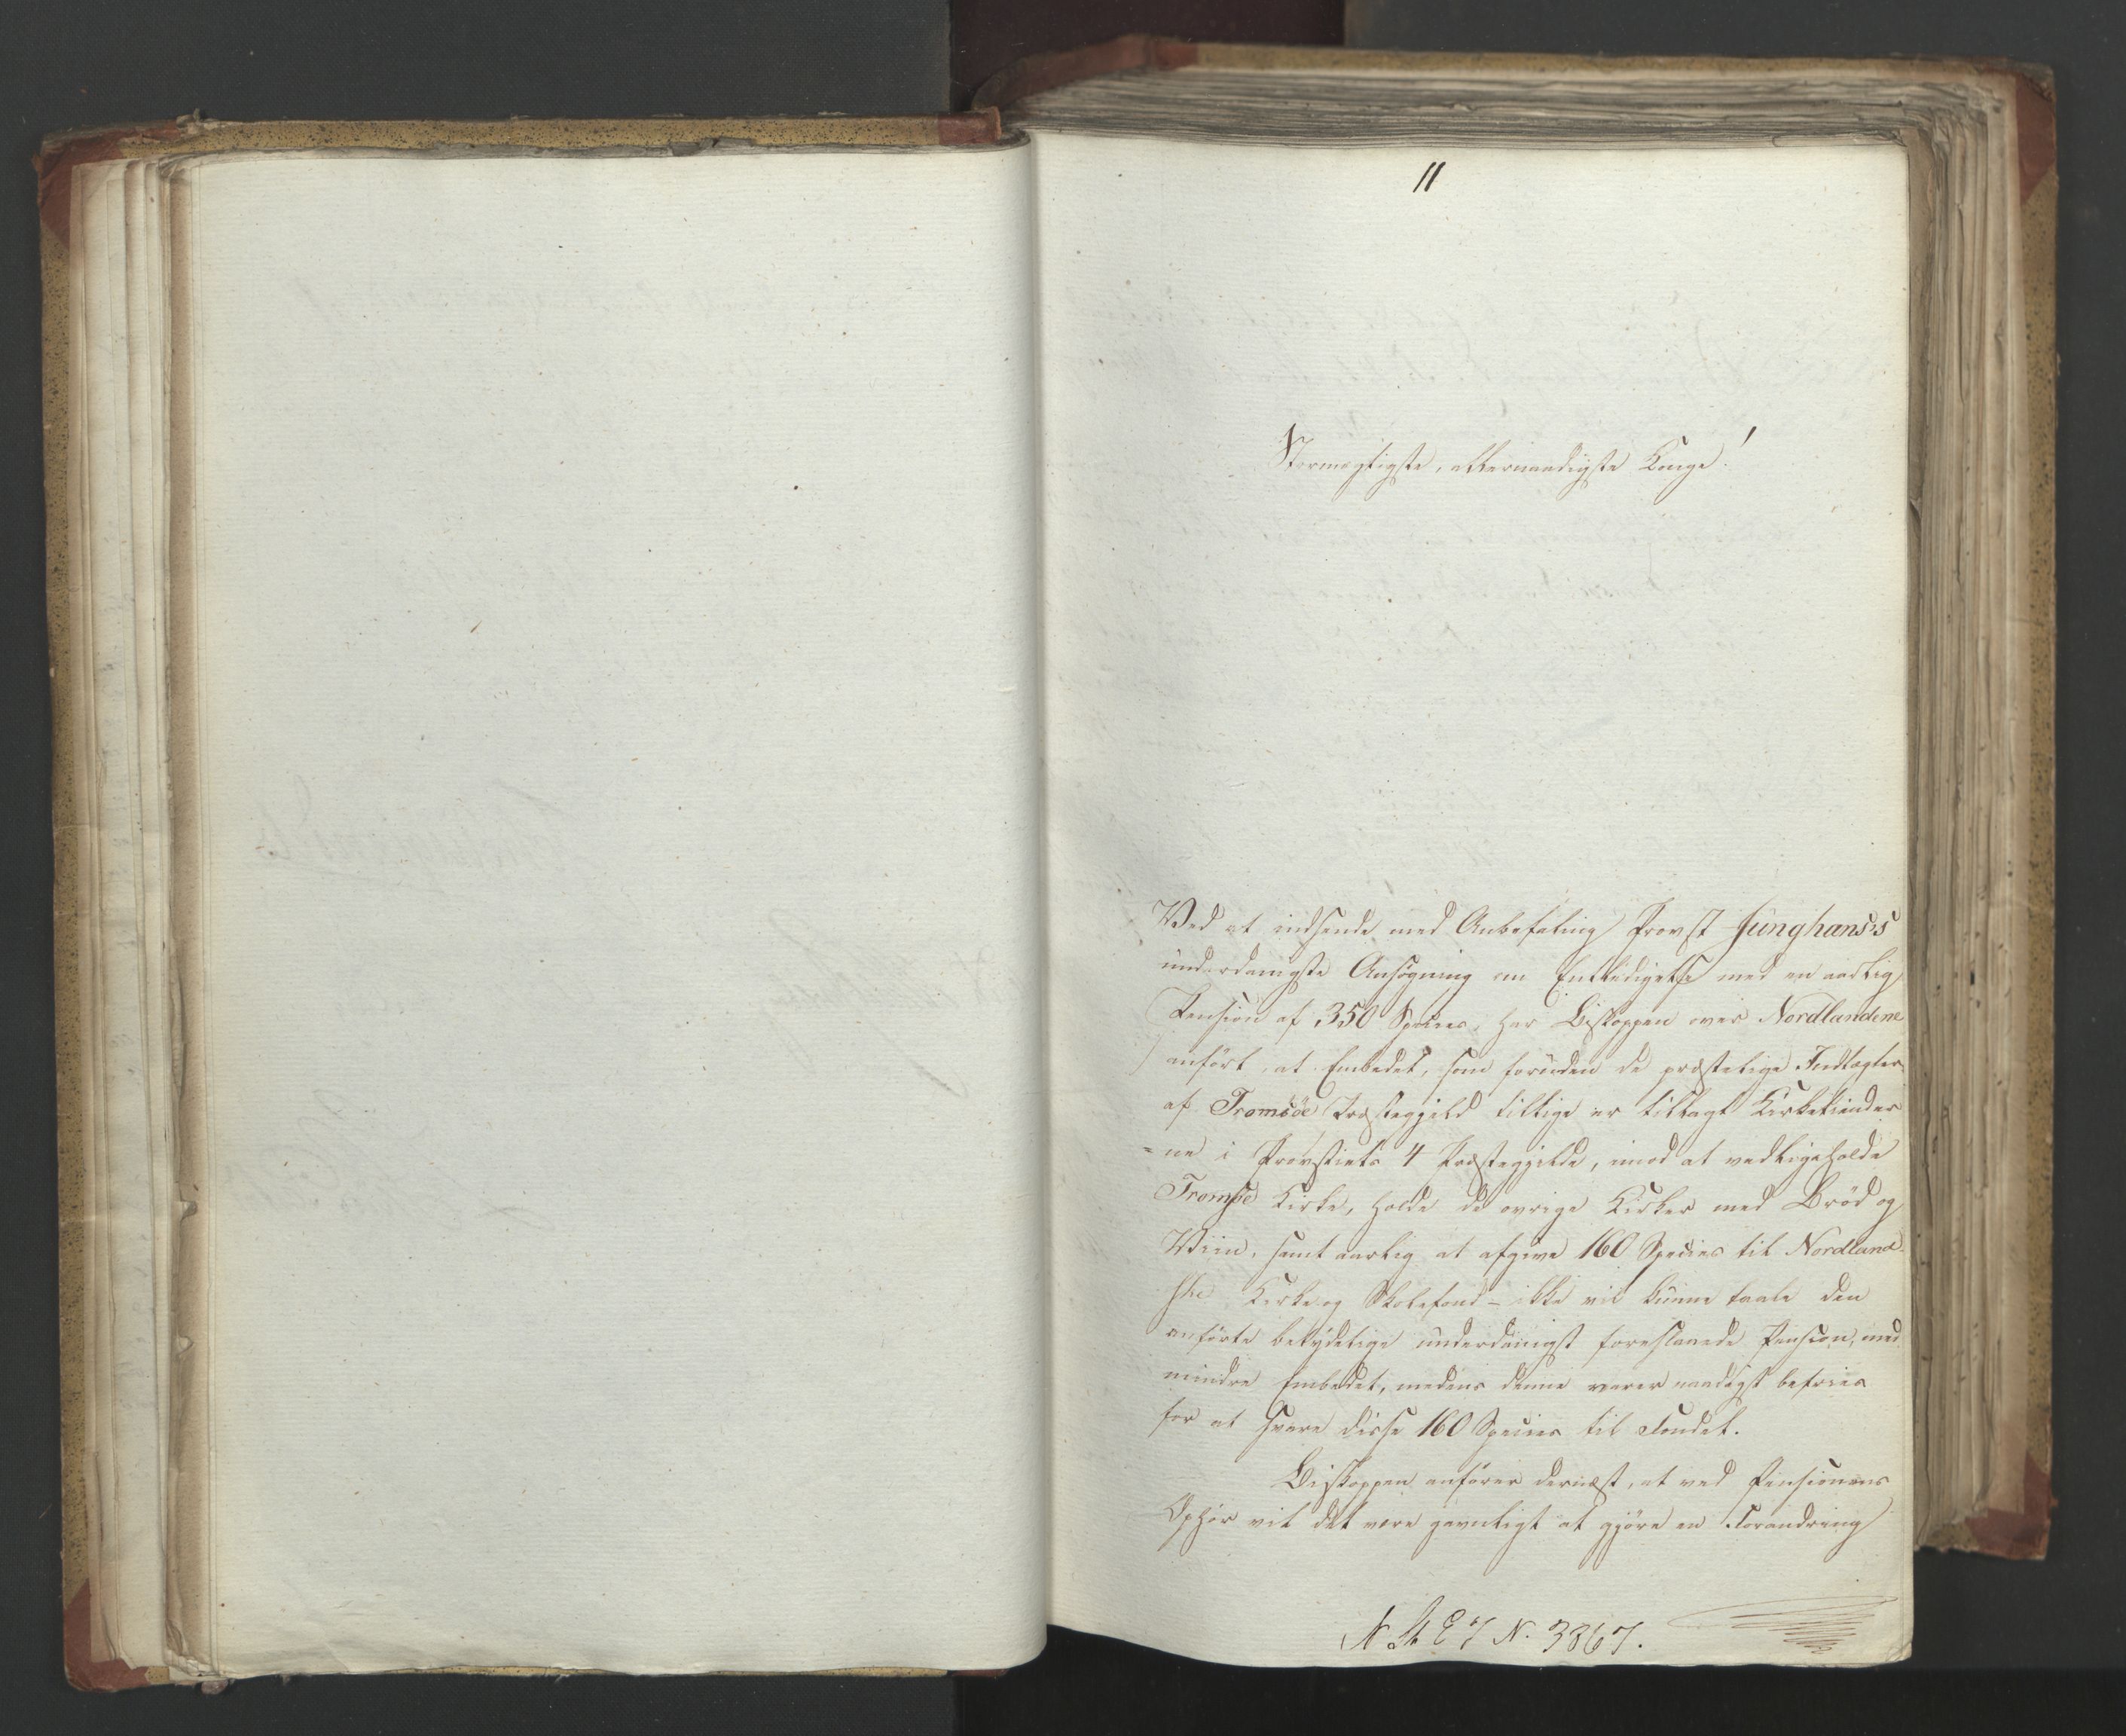 11
Stormægtigste, allernaadigste Konge!
Ved at indsende med Anbefaling Provst Junghans's
underdanigste Ansøgning om Entledigelse med en aarlig
Pension af 350 Species, har Biskoppen over Nordlandene
anført, at Embedet, som foruden de præstelige Indtægter
af Tromsöe Præstegjeld tillige er tillagt Kirketiender
=ne i Provstiets 4 Præstegjelde, imod at vedligeholde
Tromsöe Kirke, holde de øvrige Kirker med Bröd og
Viin, samt aarlig at afgive 160 Species til Nordland
ske Kirke og Skolefond - ikke vil kunne taale den
anførte betydelige underdanigst foreslaaede Pension, med
mindre Embedet, medens denne varer naadigst befries
for at svare disse 160 Species til Fondet.
Biskoppen anfører dernæst, at ved Pensionens
Ophør vil det være gavnligt at gjöre en Forandring
N. 3867.